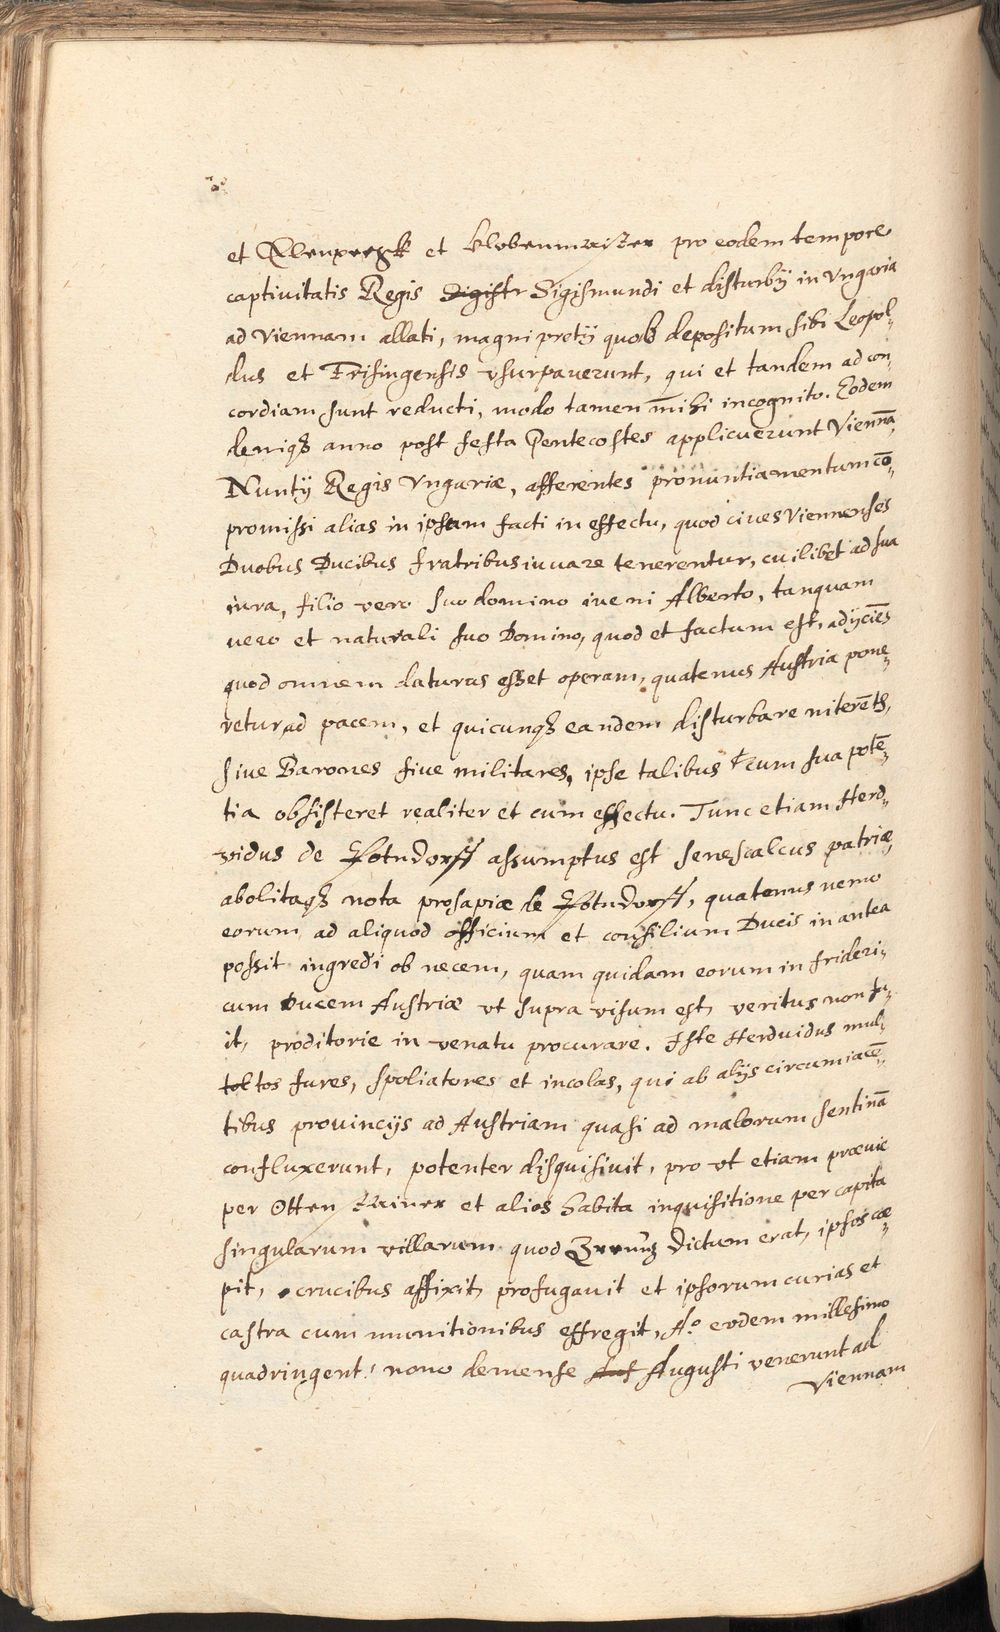 et et pro eodem tempore
captiuitatis Regis Sigismundi et disturbÿ in Vngaria
ad Viennam allati, magni pretÿ quorū depositum sibi Leopol„
dus et Frisingensis vsurpauerunt, qui et tandem ad con„
cordiam sunt reducti, modo tamen mihi incognito. Eodem
deniqꝫ anno post festa Pentecostes applicuerunt Viennā
Nuntÿ Regis Vngariæ, afferentes pronuntiamentum cō„
promissi alias in ipsam facti in effectu, quod ciues Viennenses
Duobus Ducibus fratribus iuuare tenerentur, cuilibet ad sua
iura, filio vero suo domino iueni Alberto, tanquam
uero et naturali suo Domino, quod et factum est, adÿciēs
quod omnem daturus esset operam, quatenus Austria pone„
retur ad pacem, et quicunqꝫ eandem disturbare niterēt,
siue Barones siue militares, ipse talibus cum sua potē„
tia obsisteret realiter et cum effectu. Tunc etiam Herd„
vidus de Potndorff assumptus est senescalcus patriæ,
abolitaqꝫ nota prosapiæ de Potndorff, quatenus nemo
eorum ad aliquod officium et consilium Ducis in antea
possit ingredi ob necem, quam quidam eorum in frideri„
cum Ducem Austriæ vt supra visum est, veritus non fu„
it, proditorie in venatu procurare. Iste Herduidus mul„
tos fures, spoliatores et incolas, qui ab alÿs circumiacē„
tibus prouincÿs ad Austriam quasi ad malorum sentinā
confluxerunt, potenter disquisiuit, pro vt etiam præuie
per Otten et alios habita inquisitione per capita
singularum villarum quod dictum erat, ipsos cæ„
pit, crucibus affixit, profugauit et ipsorum curias et
castra cum munitionibus effregit, A.º eodem millesimo
quadringent. nono demense Augusti venerunt ad
Viennam